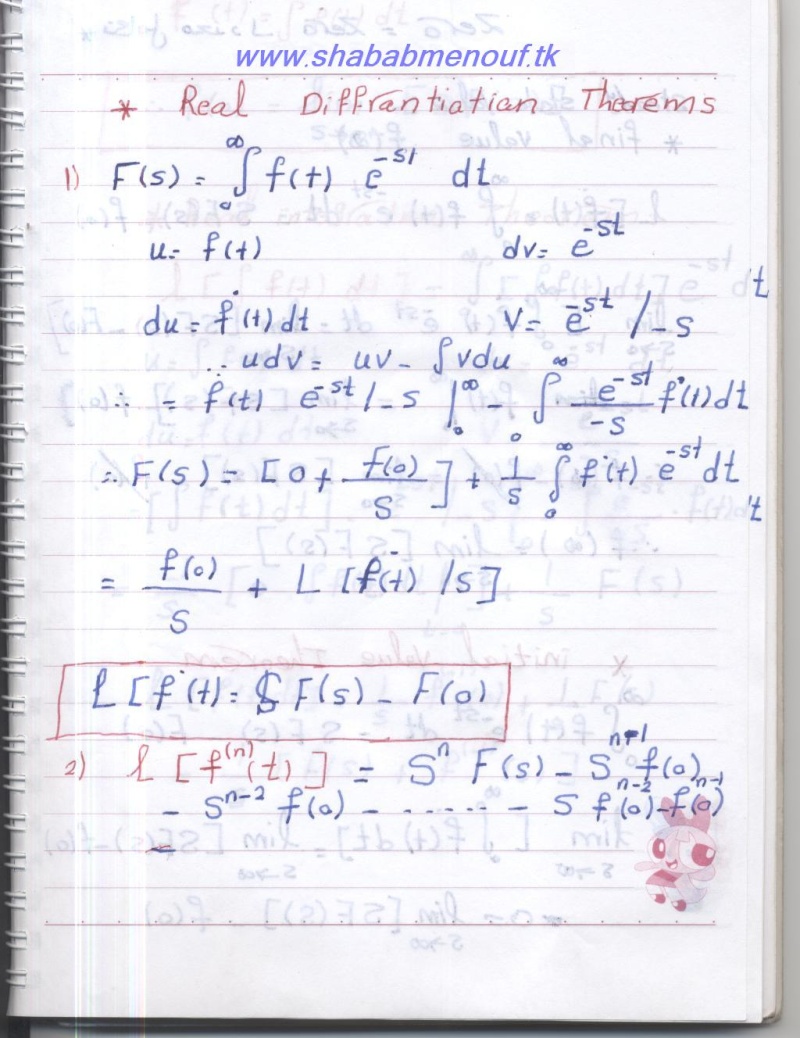 www.shababmenouf.tk
* Real Diffrantiation Theorems
1) F(s) = ∫₀^∞ f(t) e^-st dt
u = f(t) dv = e^-st
du = f˙(t) dt v = e^-st / -s
∴ udv = uv - ∫ v du
∴ = f(t) e^-st / -s |₀^∞ - ∫₀^∞ e^-st / -s f˙(t) dt
∴ F(s) = [0 + f(0)/s] + 1/s ∫₀^∞ f˙(t) e^-st dt
= f(0)/s + L [f˙(t) / s]
L [f˙(t) = S F(s) - F(0)
2) L [f^(n)(t)] = S^n F(s) - S^n-1 f(0)
- S^n-2 f(0) - ...... - S f^n-2(0) - f^n-1(0)